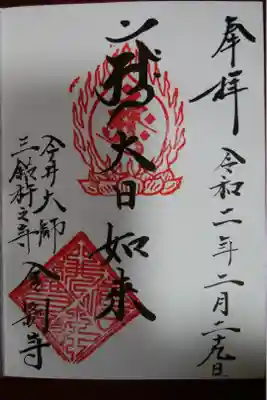 奉拝 令和二年二月二十九日
大日如来
今井大師
三鈷杵之寺 金剛寺